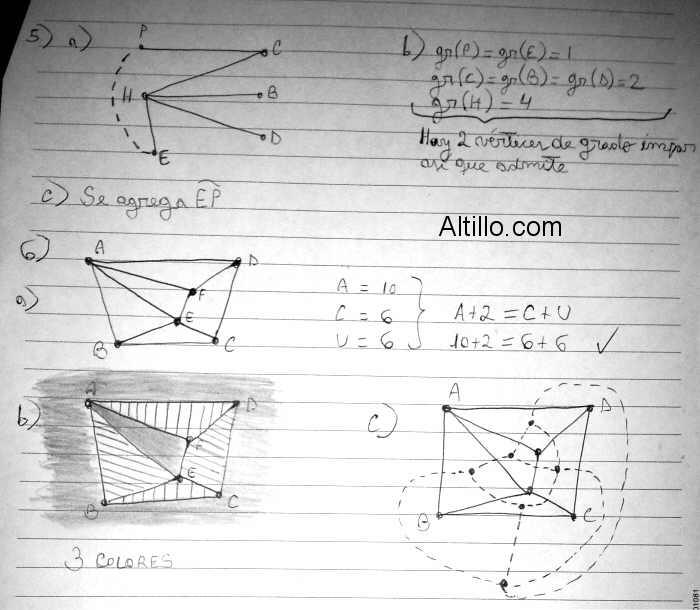 5) a)
P
C
H
B
D
E
b) gr(P) = gr(E) = 1
gr(C) = gr(B) = gr(D) = 2
gr(H) = 4
Hay 2 vértices de grado impar
así que admite
c) Se agrega EP
Altillo.com
6)
a)
A
D
F
E
B
C
A = 10
C = 6
V = 6
A+2 = C+V
10+2 = 6+6 ✓
b)
A
D
F
E
B
C
3 COLORES
c)
A
D
B
C